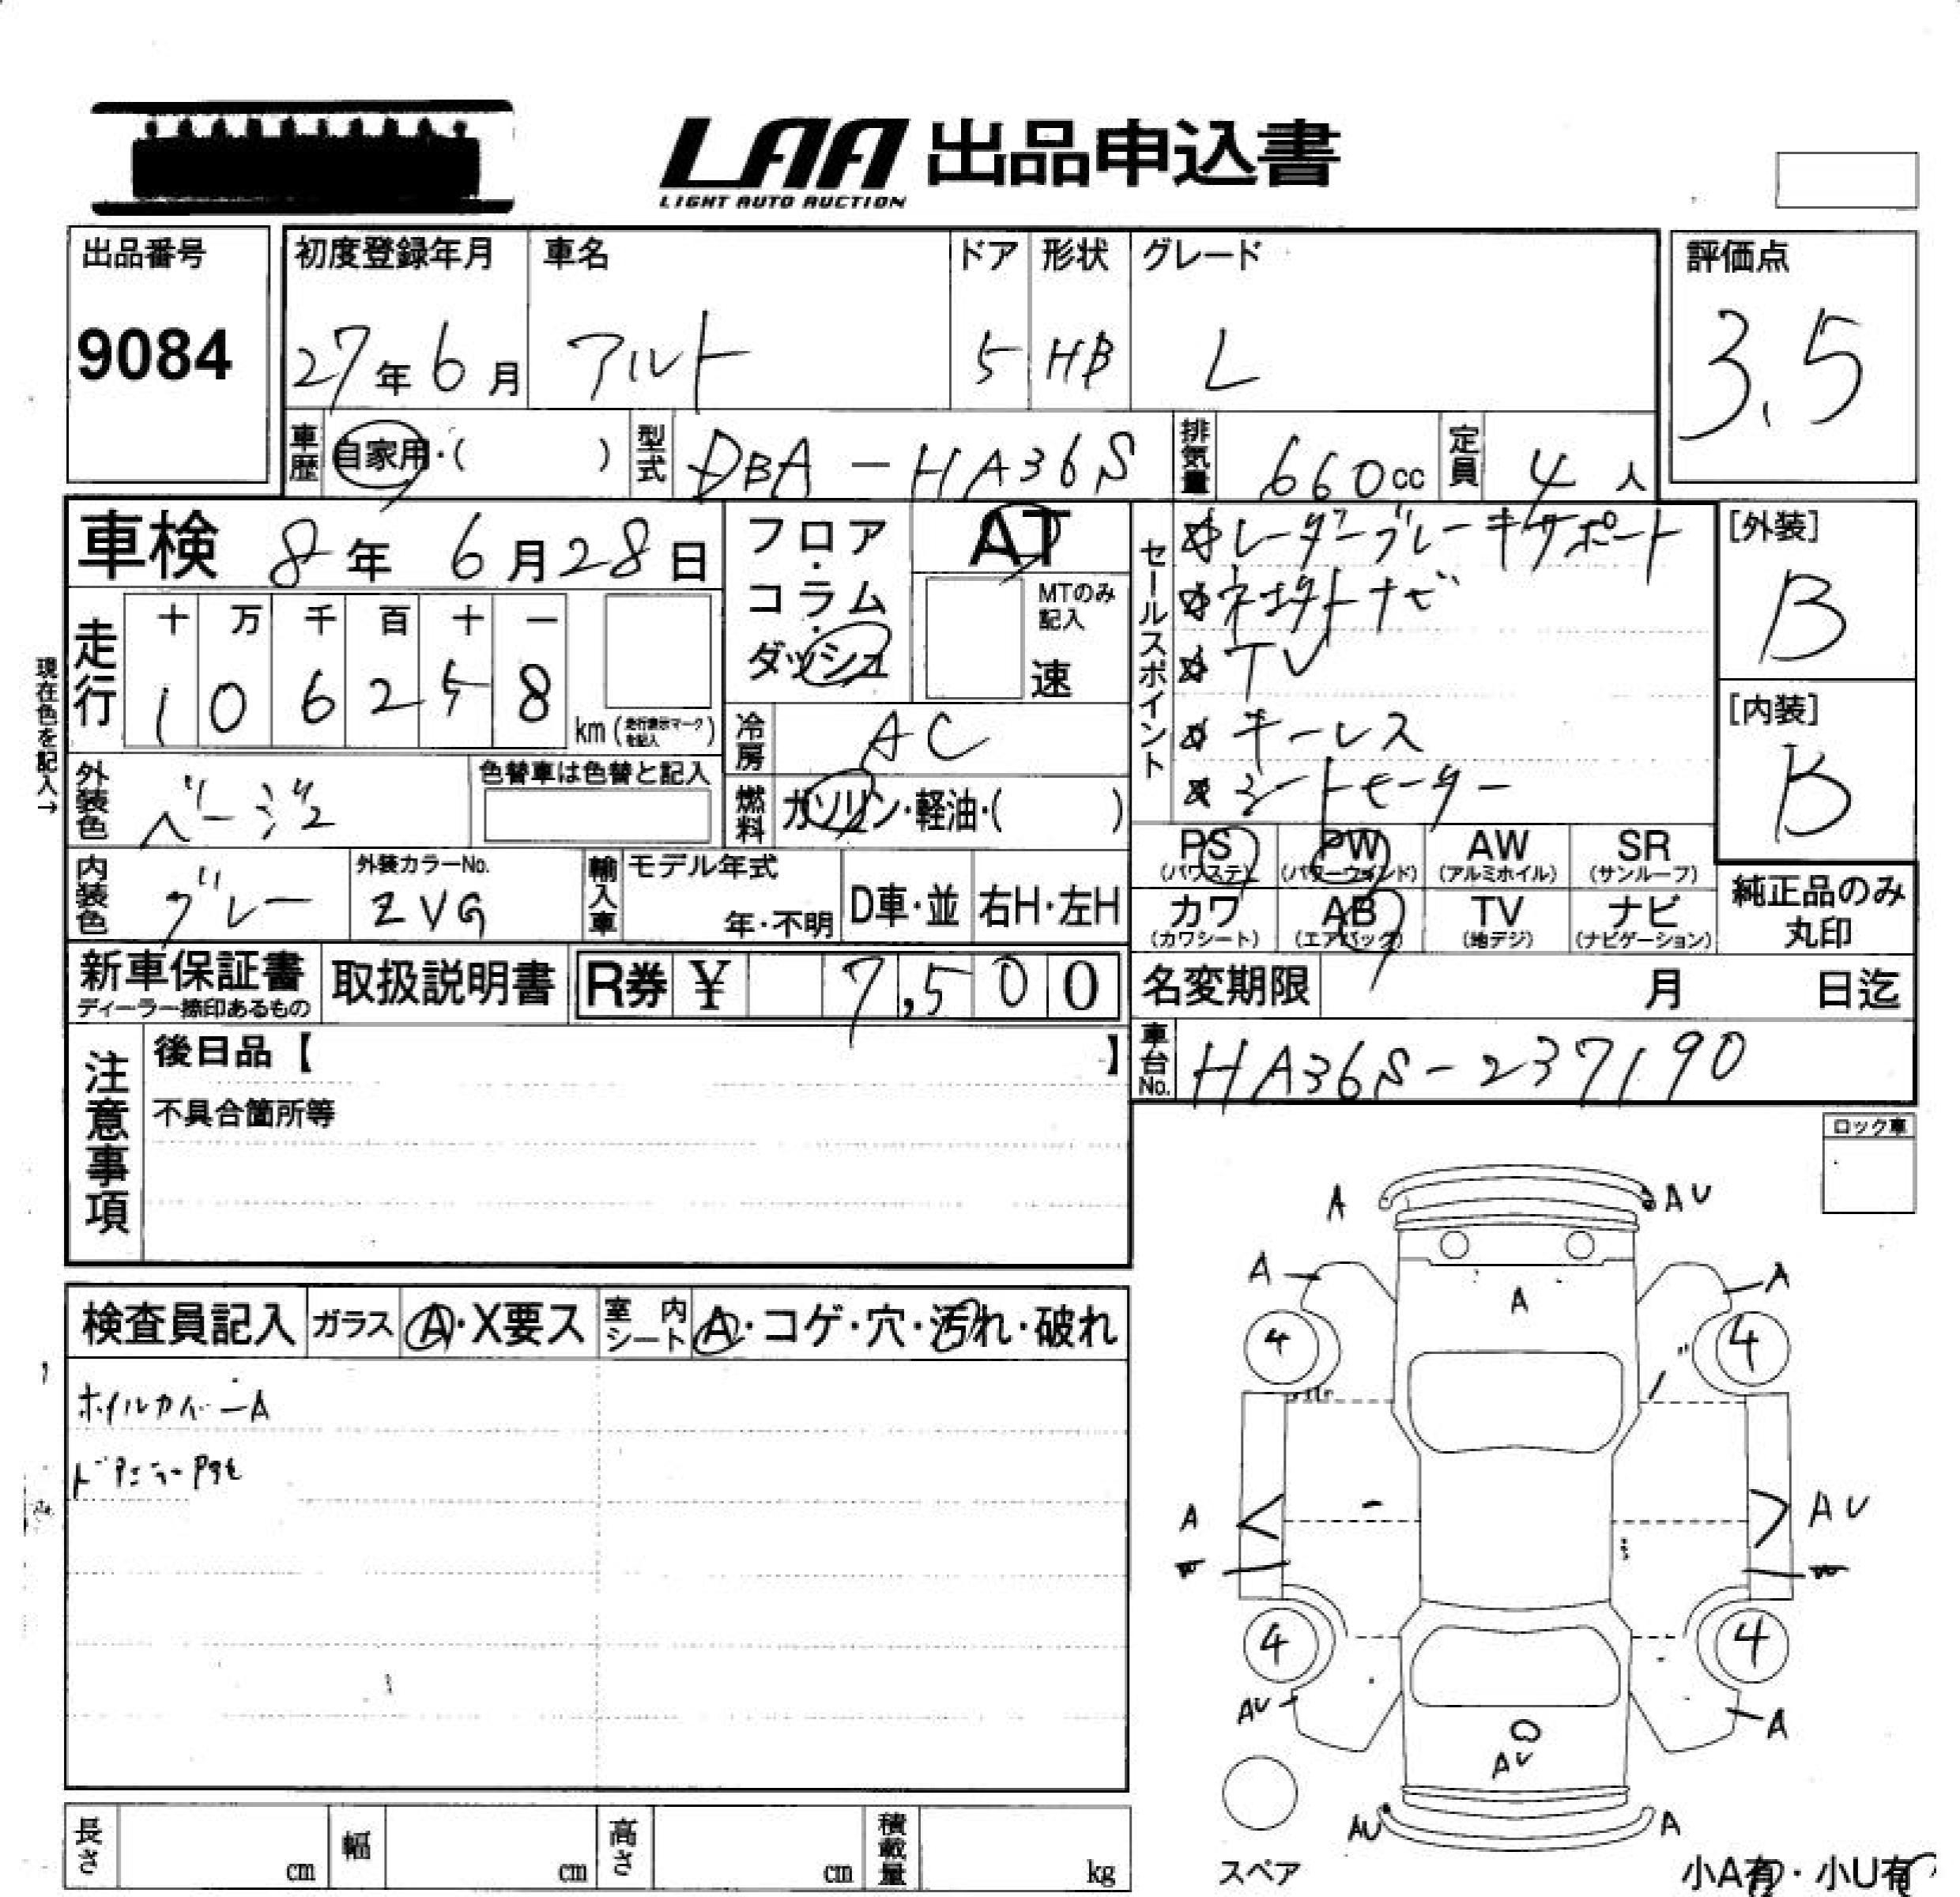 LAA 出品申込書
LIGHT AUTO AUCTION
出品番号
9084
初度登録年月
27年6月
車名
アルト
ドア
5
形状
HB
グレード
L
評価点
3.5
車歴
自家用・( )
型式
DBA-HA36S
排気量
660cc
定員
4人
車検 8年6月28日
フロア・コラム・ダッシュ
AT
MTのみ記入
速
セールスポイント
レーダーブレーキサポート
ネオクトナビ
TV
キーレス
シートヒーター
[外装]
B
[内装]
B
現在色を記入→
走行
十 万 千 百 十 一
1 0 6 2 5 8
km (走行表示マークを記入)
冷房
AC
外装色
ベージュ
色替車は色替と記入
燃料
ガソリン・軽油・( )
PS (パワステ)
PW (パワーウィンド)
AW (アルミホイル)
SR (サンルーフ)
内装色
グレー
外装カラーNo.
ZVG
輸入車
モデル年式
年・不明
D車・並
右H・左H
カワ (カワシート)
AB (エアバッグ)
TV (地デジ)
ナビ (ナビゲーション)
純正品のみ丸印
新車保証書
ディーラー捺印あるもの
取扱説明書
R券 ¥ 7,500
名変期限 月 日迄
車台No.
HA36S-237190
注意事項
後日品【 】
不具合箇所等
ロック車
検査員記入
ガラス
A・X要ス
室内シート
A・コゲ・穴・汚れ・破れ
ホイルカバーA
A
AU
A
A
A
4
4
A
AU
W
W
4
4
AU
A
AU
AU
A
スペア
小A有・小U有
長さ cm
幅 cm
高さ cm
積載量 kg